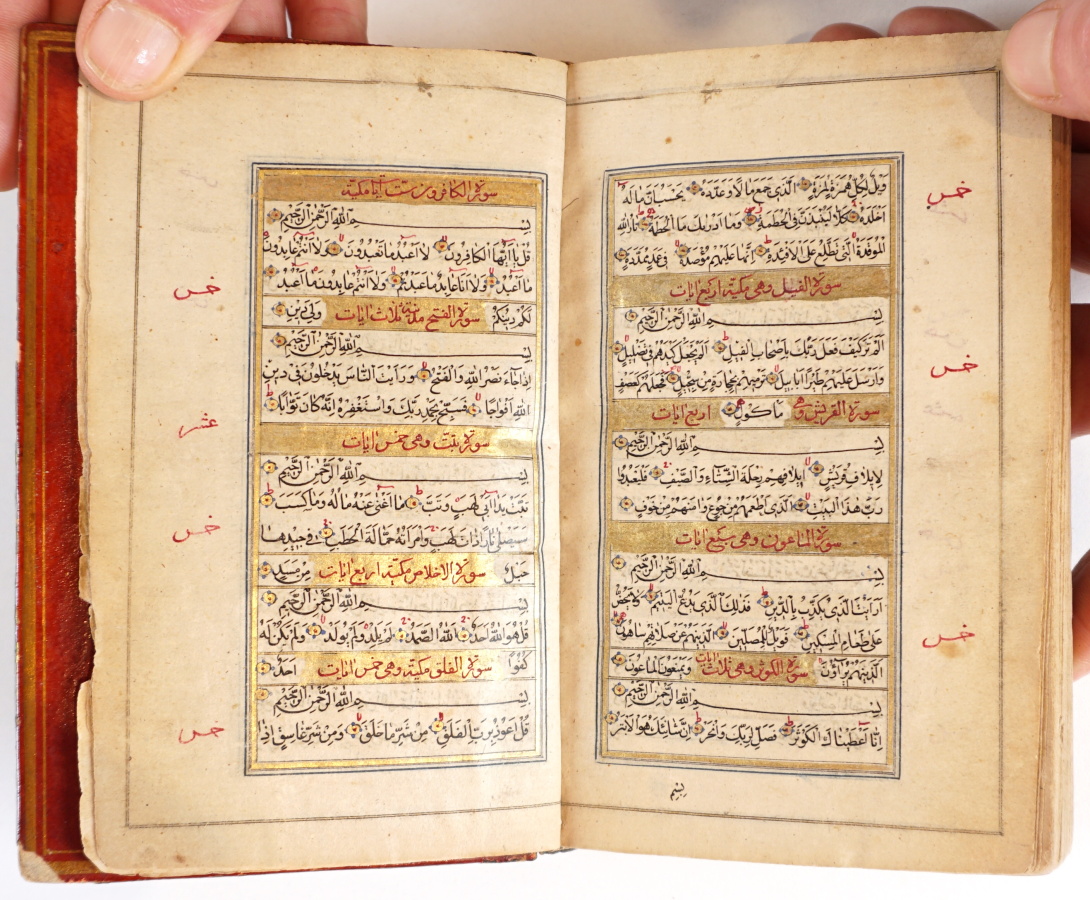 وَيْلٌ لِكُلِّ هُمَزَةٍ لُمَزَةٍ الَّذِي جَمَعَ مَالًا وَعَدَّدَهُ يَحْسَبُ اَنَّ مَالَهُ
اَخْلَدَهُ كَلَّا لَيُنْبَذَنَّ فِي الْحُطَمَةِ وَمَا اَدْرٰيكَ مَا الْحُطَمَةُ نَارُ اللهِ
الْمُوقَدَةُ الَّتِي تَطَّلِعُ عَلَى الْاَفْئِدَةِ اِنَّهَا عَلَيْهِمْ مُؤْصَدَةٌ فِي عَمَدٍ مُمَدَّدَةٍ
سورة الفيل وهي مكية اربع ايات
بِسْمِ اللهِ الرَّحْمٰنِ الرَّحِيمِ
اَلَمْ تَرَ كَيْفَ فَعَلَ رَبُّكَ بِاَصْحَابِ الْفِيلِ اَلَمْ يَجْعَلْ كَيْدَهُمْ فِي تَضْلِيلٍ
وَاَرْسَلَ عَلَيْهِمْ طَيْرًا اَبَابِيلَ تَرْمِيهِمْ بِحِجَارَةٍ مِنْ سِجِّيلٍ فَجَعَلَهُمْ كَعَصْفٍ
سورة القريش وهي مَأْكُولٍ اربع ايات
بِسْمِ اللهِ الرَّحْمٰنِ الرَّحِيمِ
لِاِيلَافِ قُرَيْشٍ اِيلَافِهِمْ رِحْلَةَ الشِّتَاءِ وَالصَّيْفِ فَلْيَعْبُدُوا
رَبَّ هٰذَا الْبَيْتِ الَّذِي اَطْعَمَهُمْ مِنْ جُوعٍ وَاٰمَنَهُمْ مِنْ خَوْفٍ
سورة الماعون وهي سبع ايات
بِسْمِ اللهِ الرَّحْمٰنِ الرَّحِيمِ
اَرَاَيْتَ الَّذِي يُكَذِّبُ بِالدِّينِ فَذٰلِكَ الَّذِي يَدُعُّ الْيَتِيمَ وَلَا يَحُضُّ
عَلٰى طَعَامِ الْمِسْكِينِ فَوَيْلٌ لِلْمُصَلِّينَ الَّذِينَ هُمْ عَنْ صَلَاتِهِمْ سَاهُونَ
الَّذِينَ هُمْ يُرَاؤُنَ سورة الكوثر وهي ثلاث ايات وَيَمْنَعُونَ الْمَاعُونَ
بِسْمِ اللهِ الرَّحْمٰنِ الرَّحِيمِ
اِنَّا اَعْطَيْنَاكَ الْكَوْثَرَ فَصَلِّ لِرَبِّكَ وَانْحَرْ اِنَّ شَانِئَكَ هُوَ الْاَبْتَرُ
خمس
خمس
خمس
سورة الكافرون ست ايات مكية
بِسْمِ اللهِ الرَّحْمٰنِ الرَّحِيمِ
قُلْ يَا اَيُّهَا الْكَافِرُونَ لَا اَعْبُدُ مَا تَعْبُدُونَ وَلَا اَنْتُمْ عَابِدُونَ
مَا اَعْبُدُ وَلَا اَنَا عَابِدٌ مَا عَبَدْتُمْ وَلَا اَنْتُمْ عَابِدُونَ مَا اَعْبُدُ
لَكُمْ دِينُكُمْ سورة الفتح مدنية ثلاث ايات وَلِيَ دِينِ
بِسْمِ اللهِ الرَّحْمٰنِ الرَّحِيمِ
اِذَا جَاءَ نَصْرُ اللهِ وَالْفَتْحُ وَرَاَيْتَ النَّاسَ يَدْخُلُونَ فِي دِينِ
اللهِ اَفْوَاجًا فَسَبِّحْ بِحَمْدِ رَبِّكَ وَاسْتَغْفِرْهُ اِنَّهُ كَانَ تَوَّابًا
سورة تبت وهي خمس ايات
بِسْمِ اللهِ الرَّحْمٰنِ الرَّحِيمِ
تَبَّتْ يَدَا اَبِي لَهَبٍ وَتَبَّ مَا اَغْنٰى عَنْهُ مَالُهُ وَمَا كَسَبَ
سَيَصْلٰى نَارًا ذَاتَ لَهَبٍ وَامْرَاَتُهُ حَمَّالَةَ الْحَطَبِ فِي جِيدِهَا
حَبْلٌ سورة الاخلاص مكية اربع ايات مِنْ مَسَدٍ
بِسْمِ اللهِ الرَّحْمٰنِ الرَّحِيمِ
قُلْ هُوَ اللهُ اَحَدٌ اَللهُ الصَّمَدُ لَمْ يَلِدْ وَلَمْ يُولَدْ وَلَمْ يَكُنْ لَهُ
كُفُوًا سورة الفلق مكية وهي خمس ايات اَحَدٌ
بِسْمِ اللهِ الرَّحْمٰنِ الرَّحِيمِ
قُلْ اَعُوذُ بِرَبِّ الْفَلَقِ مِنْ شَرِّ مَا خَلَقَ وَمِنْ شَرِّ غَاسِقٍ اِذَا
خمس
عشر
خمس
خمس